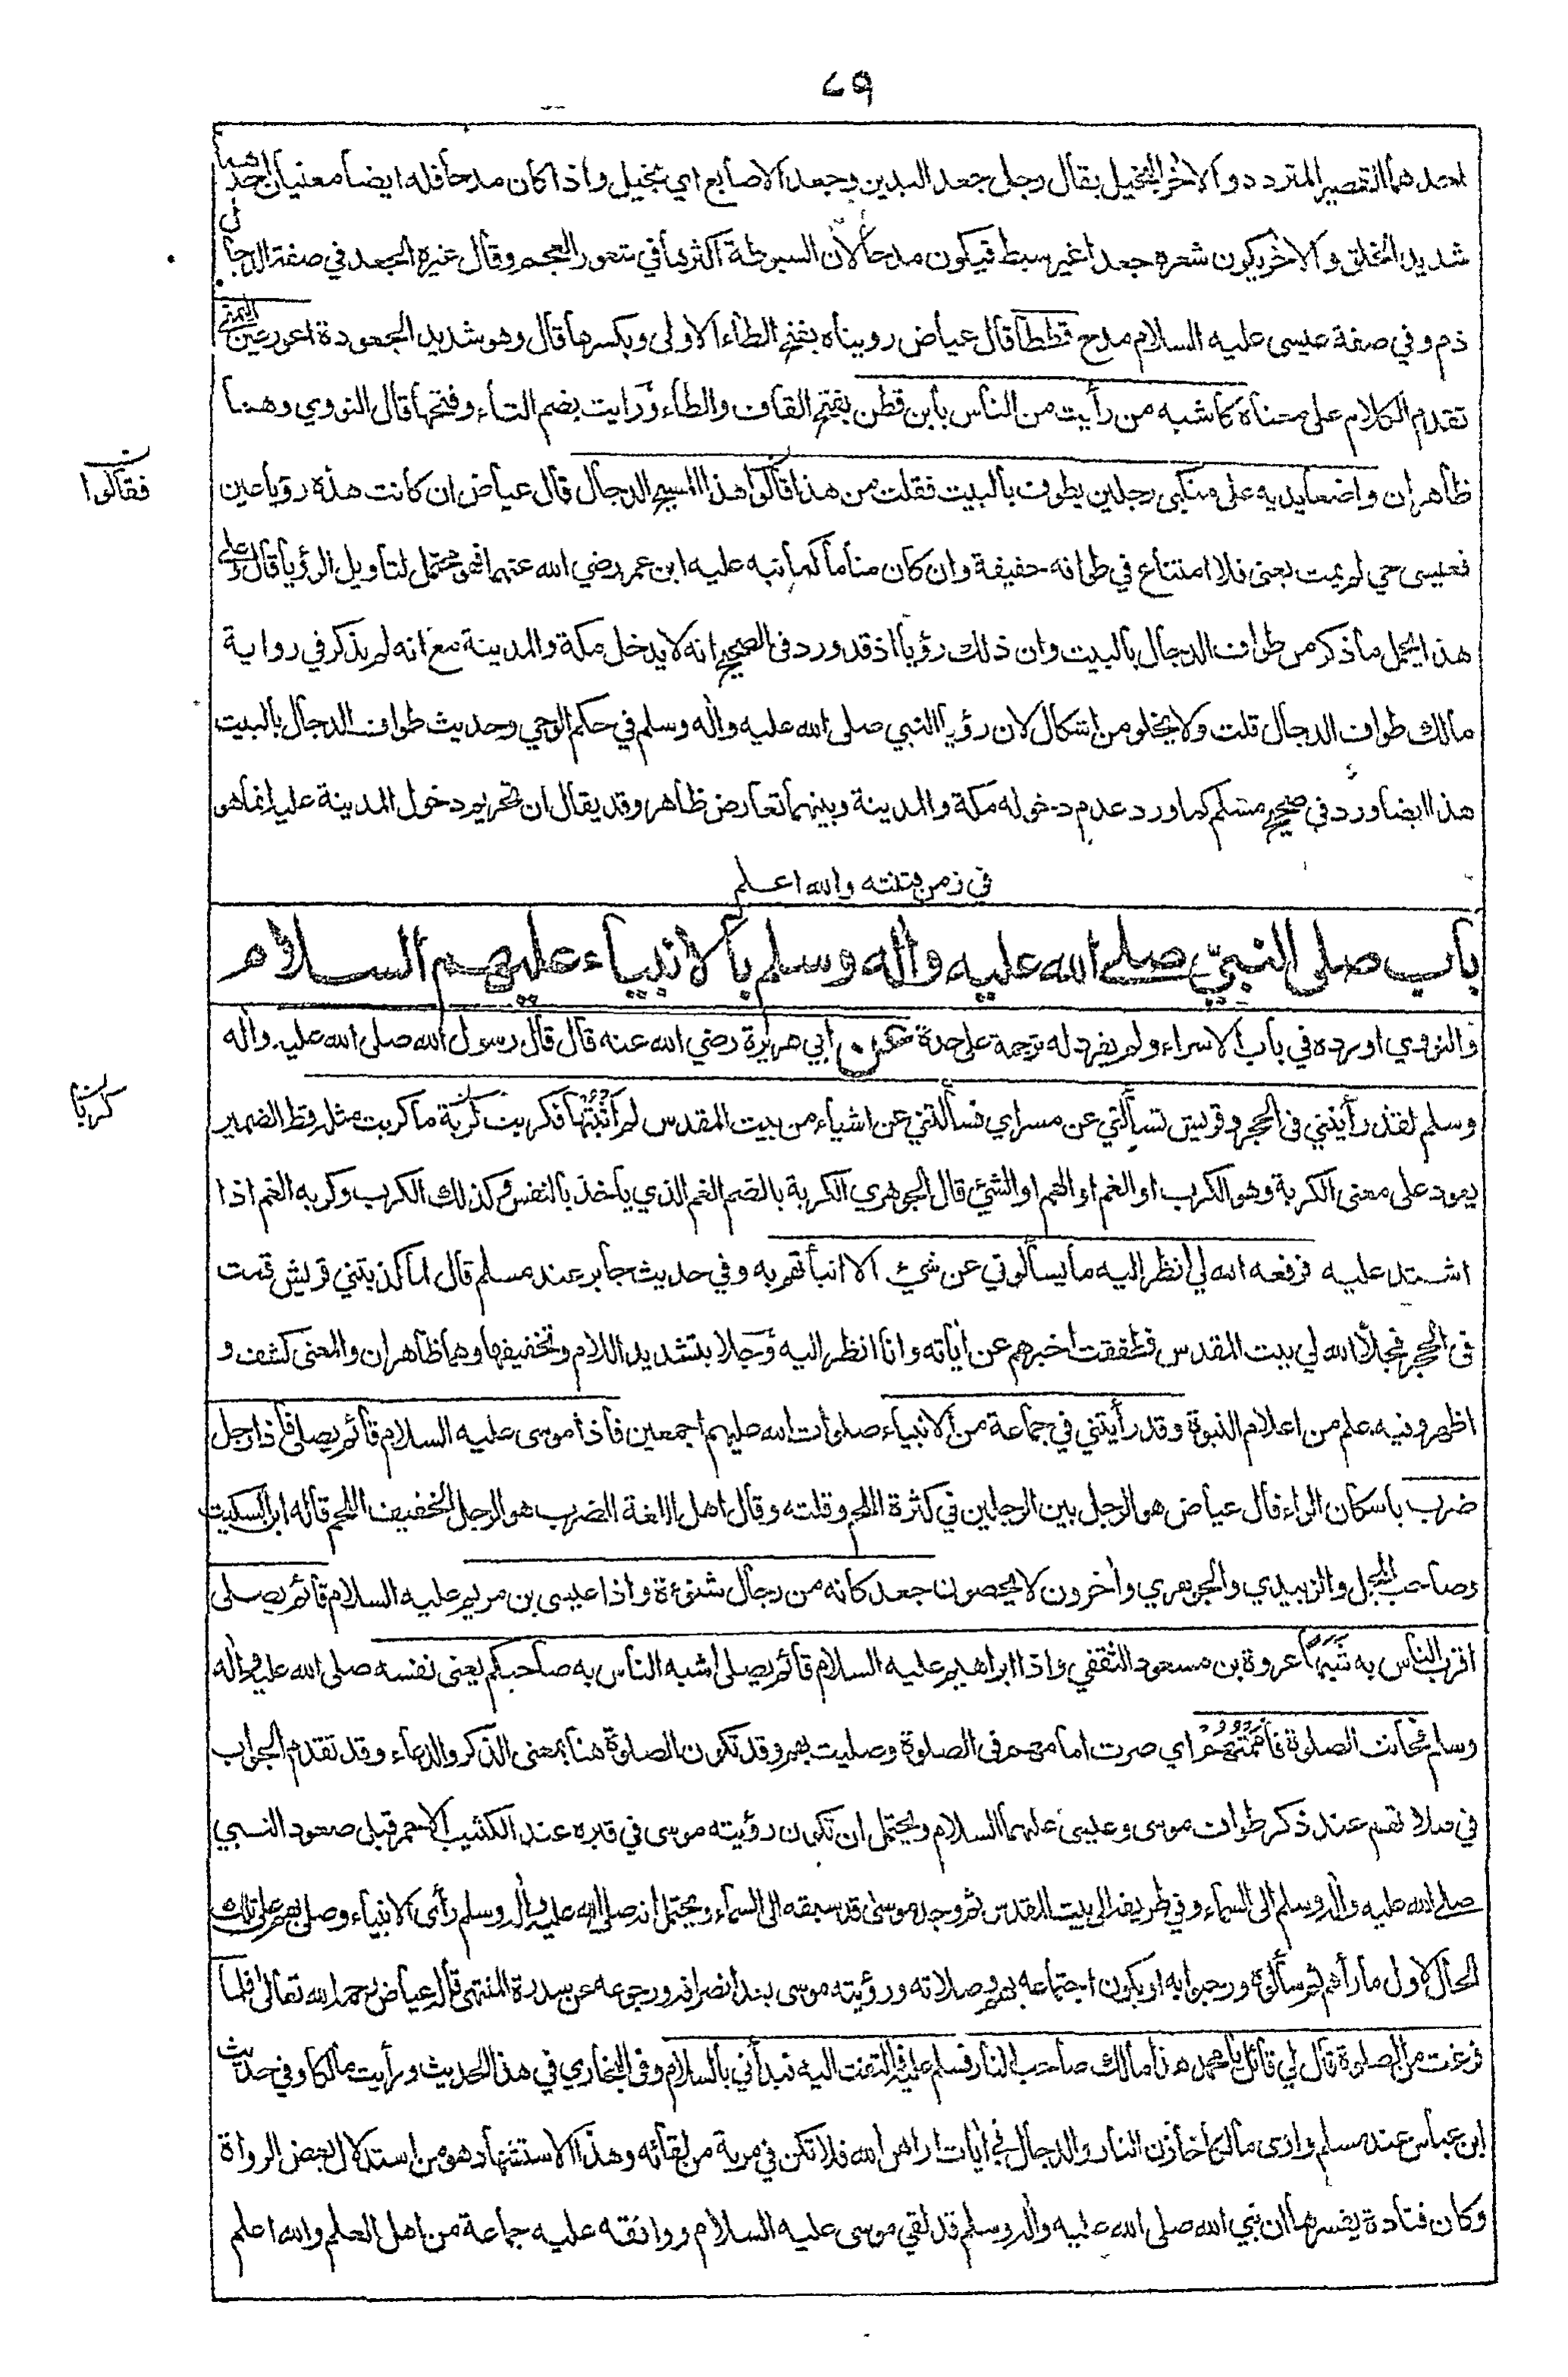 ٧٩
احدهما القصير المتردد والاخر البخيل يقال رجل جعد اليدين وجعد الاصابع اي بخيل واذا كان مدحا فله ايضا معنيان احدهما
شديد الخلق والاخر يكون شعره جعدا غير سبط فيكون مدحا لان السبوطة اكثرها في شعور العجم وقال غيره الجعد في صفة الدجال
ذم وفي صفة عيسى عليه السلام مدح قططا قال عياض رويناه بفتح الطاء الاولى وبكسرها قال وهو شديد الجعودة اعور عين اليمنى
تقدم الكلام على معناه كاشبه من رأيت من الناس بابن قطن بفتح القاف والطاء ورأيت بضم التاء وفتحها قال النووي وهما
ظاهران واضعا يديه على منكبي رجلين يطوف بالبيت فقلت من هذا قالوا هذا المسيح الدجال قال عياض ان كانت هذه رؤيا عين
فقالوا
فعيسى حي لم يمت يعني فلا امتناع في طوافه حقيقة وان كان مناما كما نبه عليه ابن عمر رضي الله عنهما فهو محتمل لتاويل الرؤيا قال وعلى
هذا يحمل ما ذكر من طواف الدجال بالبيت وان ذلك رؤيا اذ قد ورد في الصحيح انه لا يدخل مكة والمدينة مع انه لم يذكر في رواية
مالك طواف الدجال قلت ولا يخلو من اشكال لان رؤيا النبي صلى الله عليه واله وسلم في حكم الوحي وحديث طواف الدجال بالبيت
هذا ايضا ورد في صحيح مسلم كما ورد عدم دخوله مكة والمدينة وبينهما تعارض ظاهر وقد يقال ان تحريم دخول المدينة عليه انما هو
في زمن فتنته والله اعلم
باب صلى النبيّ صلى الله عليه واله وسلم بالانبياء عليهم السلام
والنووي اورده في باب الاسراء ولم يفرد له ترجمة على حدة عن ابي هريرة رضي الله عنه قال قال رسول الله صلى الله عليه واله
وسلم لقد رأيتني في الحجر وقريش تسألني عن مسراي فسألتني عن اشياء من بيت المقدس لم اثبتها فكربت كربة ما كربت مثله قط الضمير
كربا
يعود على معنى الكربة وهو الكرب او الغم او الهم او الشئ قال الجوهري الكربة بالضم الغم الذي ياخذ بالنفس وكذلك الكرب وكربه الغم اذا
اشتد عليه فرفعه الله لي انظر اليه ما يسألوني عن شئ الا انبأتهم به وفي حديث جابر عند مسلم قال لما كذبتني قريش قمت
في الحجر فجلا الله لي بيت المقدس فطفقت اخبرهم عن اٰياته وانا انظر اليه وجلا بتشديد اللام وتخفيفها وهما ظاهران والمعنى كشف و
اظهر وفيه علم من اعلام النبوة وقد رأيتني في جماعة من الانبياء صلوات الله عليهم اجمعين فاذا موسى عليه السلام قائم يصلي فاذا رجل
ضرب باسكان الراء قال عياض هو الرجل بين الرجلين في كثرة اللحم وقلته وقال اهل اللغة الضرب هو الرجل الخفيف اللحم قاله ابن السكيت
وصاحب المجمل والزبيدي والجوهري واخرون لا يحصون جعد كانه من رجال شنوءة واذا عيسى بن مريم عليه السلام قائم يصلى
اقرب الناس به شَبَهًا عروة بن مسعود الثقفي واذا ابراهيم عليه السلام قائم يصلى اشبه الناس به صاحبكم يعنى نفسه صلى الله عليه واله
وسلم فحانت الصلوة فاممتهم اي صرت امامهم في الصلوة وصليت بهم وقد تكون الصلوة هنا بمعنى الذكر والدعاء وقد تقدم الجواب
في صلاتهم عند ذكر طواف موسى وعيسى عليهما السلام ويحتمل ان تكون رؤيته موسى في قبره عند الكثيب الاحمر قبل صعود النبي
صلى الله عليه واله وسلم الى السماء وفي طريقه الى بيت المقدس ثم وجد موسى قد سبقه الى السماء ويحتمل انه صلى الله عليه واله وسلم رأى الانبياء وصلى بهم على تلك
الحال لاول ما رأهم ثم سألوه ورحبوا به او يكون اجتماعه بهم وصلاته ورؤيته موسى بعد انصرافه ورجوعه عن سدرة المنتهى قال عياض رحمه الله تعالى فلما
فرغت من الصلوة قال لي قائل يا محمد هذا مالك صاحب النار فسلم عليه فالتفت اليه فبدأني بالسلام وفي البخاري في هذا الحديث ورأيت مالكا وفي حديث
ابن عباس عند مسلم وارى مالكا خازن النار والدجال في اٰيات اراهن الله فلا تكن في مرية من لقائه وهذا الاستشهاد هو من استدلال بعض الرواة
وكان قتادة يفسرها ان نبي الله صلى الله عليه واله وسلم قد لقي موسى عليه السلام ووافقه عليه جماعة من اهل العلم والله اعلم